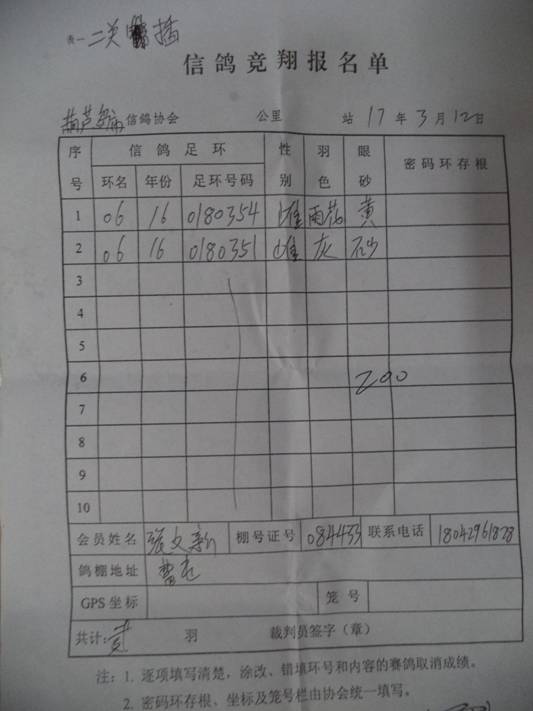 表一 二关 插
信鸽竞翔报名单
葫芦岛 信鸽协会 公里 站 17 年 3 月 12 日
序号 信鸽足环 性别 羽色 眼砂 密码环存根
环名 年份 足环号码
1 06 16 0180354 雄 雨花 黄
2 06 16 0180351 雄 灰 砂
3
4
5
6 200
7
8
9
10
会员姓名 张文新 棚号证号 084433 联系电话 18042961828
鸽棚地址 曹庄
GPS坐标 笼号
共计: 贰 羽 裁判员签字(章)
注: 1. 逐项填写清楚,涂改、错填环号和内容的赛鸽取消成绩。
2. 密码环存根、坐标及笼号栏由协会统一填写。